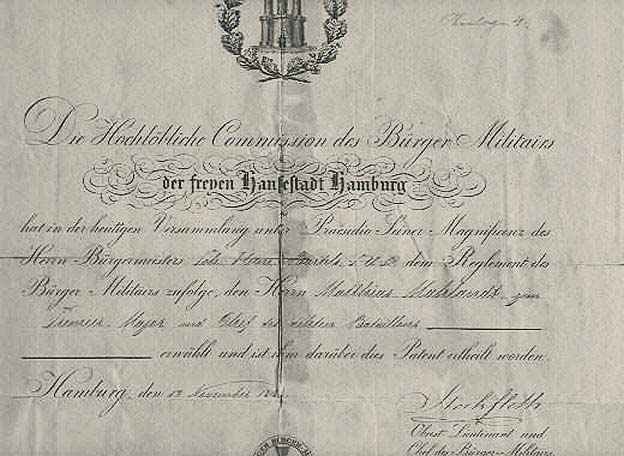 Die Hochlöbliche Commission des Bürger-Militairs
der freyen Hansestadt Hamburg
hat in der heutigen Versammlung unter Praesidio Seiner Magnifizenz des
Herrn Bürgermeisters dem Reglement des
Bürger-Militairs zufolge, den Herrn Matthias zum
Premier-Major und Chef des Bataillons
erwählt und ist ihm darüber dies Patent ertheilt worden.
Hamburg, den 12 November
Stockfleth
Obrist Lieutenant und
Chef des Bürger-Militairs